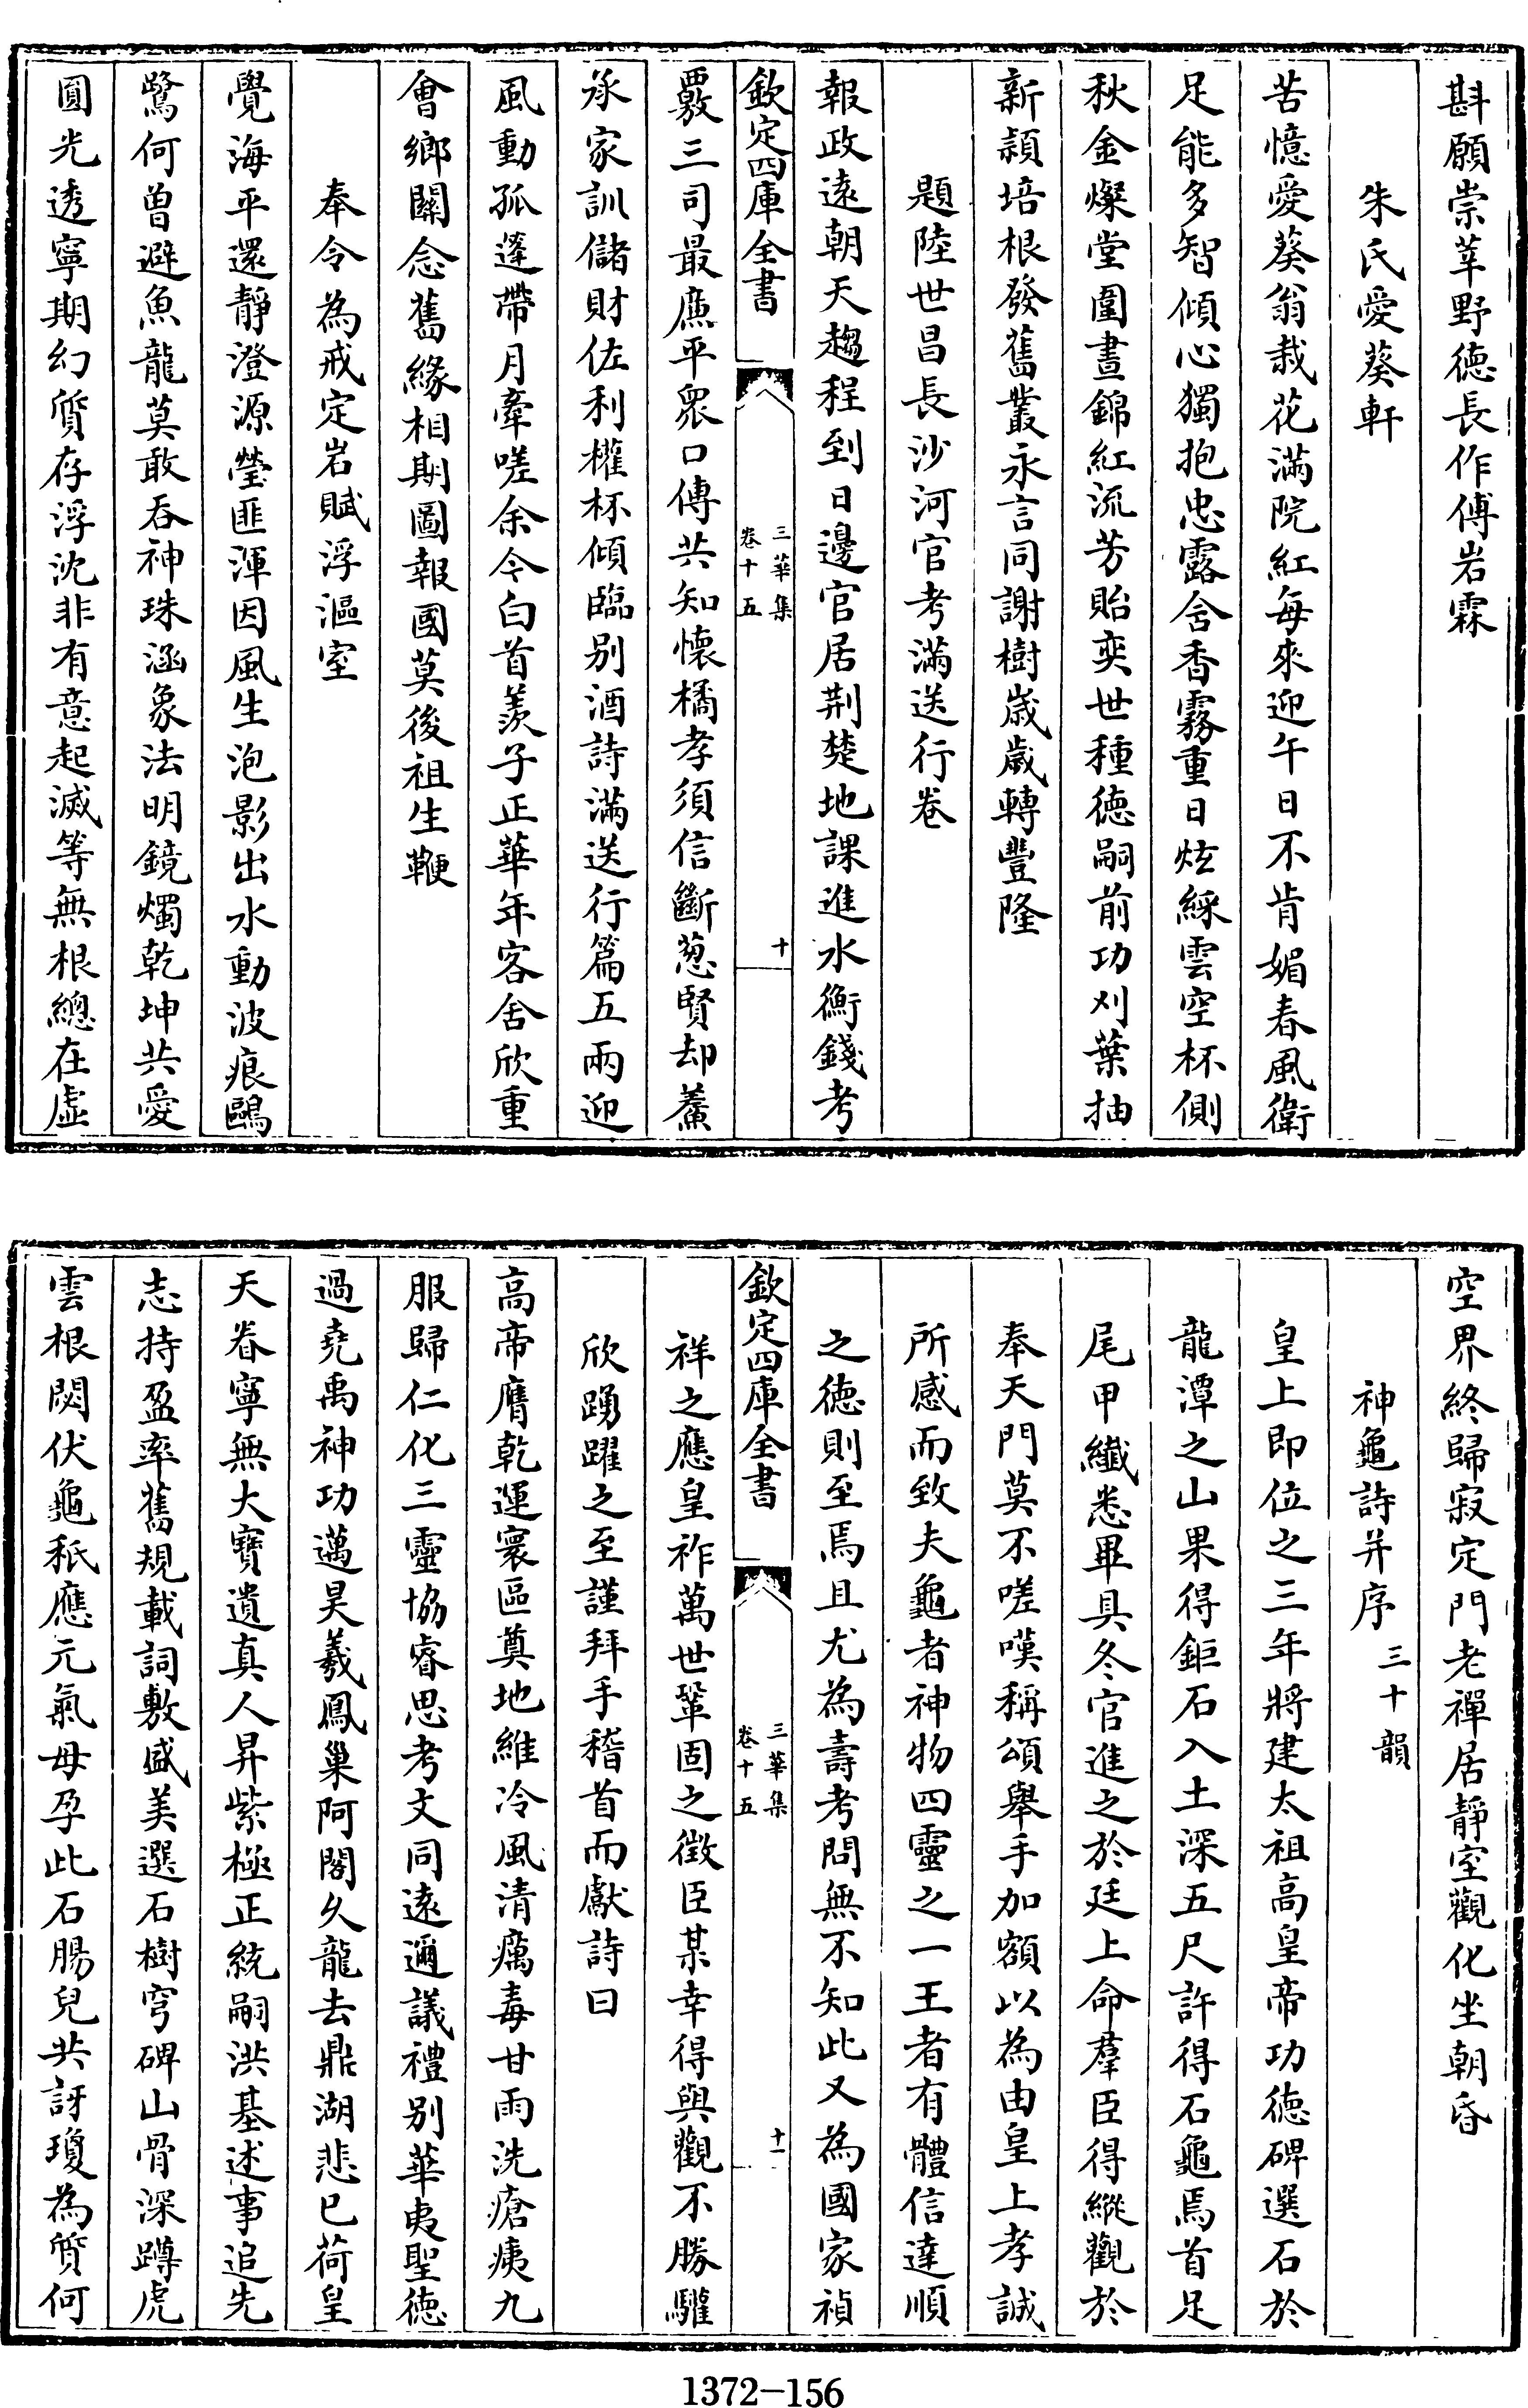 斟願崇莘野徳長作傅岩霖
朱氏愛葵軒
苦憶愛葵翁栽花滿院紅每來迎午日不肯媚春風衛
足能多智傾心獨抱忠露含香霧重日炫綵雲空杯側
秋金燦堂圍晝錦紅流芳貽奕世種徳嗣前功刈葉抽
新穎培根發舊叢永言同謝樹歲歲轉豐隆
題陸世昌長沙河官考滿送行卷
報政遠朝天趨程到日邊官居荆楚地課進水衡錢考
欽定四庫全書
三華集
卷十五
十
覈三司最廉平衆口傳共知懷橘孝須信斷葱賢却羞
承家訓儲財佐利權杯傾臨别酒詩滿送行篇五兩迎
風動孤蓬帶月牽嗟余今白首羨子正華年客舍欣重
會鄉關念舊緣相期圖報國莫後祖生鞭
奉令為戒定岩賦浮漚室
覺海平還靜澄源瑩匪渾因風生泡影出水動波痕鷗
鷺何曽避魚龍莫敢吞神珠涵象法明鏡燭乾坤共愛
圓光透寧期幻質存浮沈非有意起滅等無根總在虛
空界終歸寂定門老禪居靜室觀化坐朝昏
神龜詩并序三十韻
皇上即位之三年將建太祖高皇帝功徳碑選石於
龍潭之山果得鉅石入土深五尺許得石龜焉首足
尾甲纎悉畢具冬官進之於廷上命羣臣得縱觀於
奉天門莫不嗟嘆稱頌舉手加額以為由皇上孝誠
所感而致夫龜者神物四靈之一王者有體信達順
之徳則至焉且尤為壽考問無不知此又為國家禎
欽定四庫全書
三華集
卷十五
十一
祥之應皇祚萬世鞏固之徵臣某幸得與觀不勝驩
欣踴躍之至謹拜手稽首而獻詩曰
高帝膺乾運寰區奠地維冷風清癘毒甘雨洗瘡痍九
服歸仁化三靈協睿思考文同遠邇議禮别華夷聖徳
過堯禹神功邁昊羲鳳巢阿閣久龍去鼎湖悲已荷皇
天眷寧無大寶遺真人昇紫極正統嗣洪基述事追先
志持盈率舊規載詞敷盛美選石樹穹碑山骨深蹲虎
雲根閟伏龜秖應元氣母孕此石腸兒共訝瓊為質何
1372-156